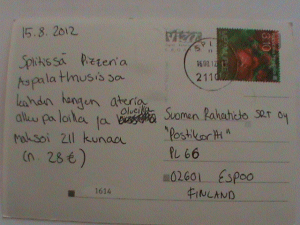 15.8.2012
Splitissä Pizzeria
Aspalathusissa
kahden hengen ateria
alkupaloilla ja oluella
maksoi 211 kunaa
(n. 28 €)
Suomen Rahatieto SRT Oy
"Postikortti"
PL 66
02601 ESPOO
FINLAND
2110
3.10
1614